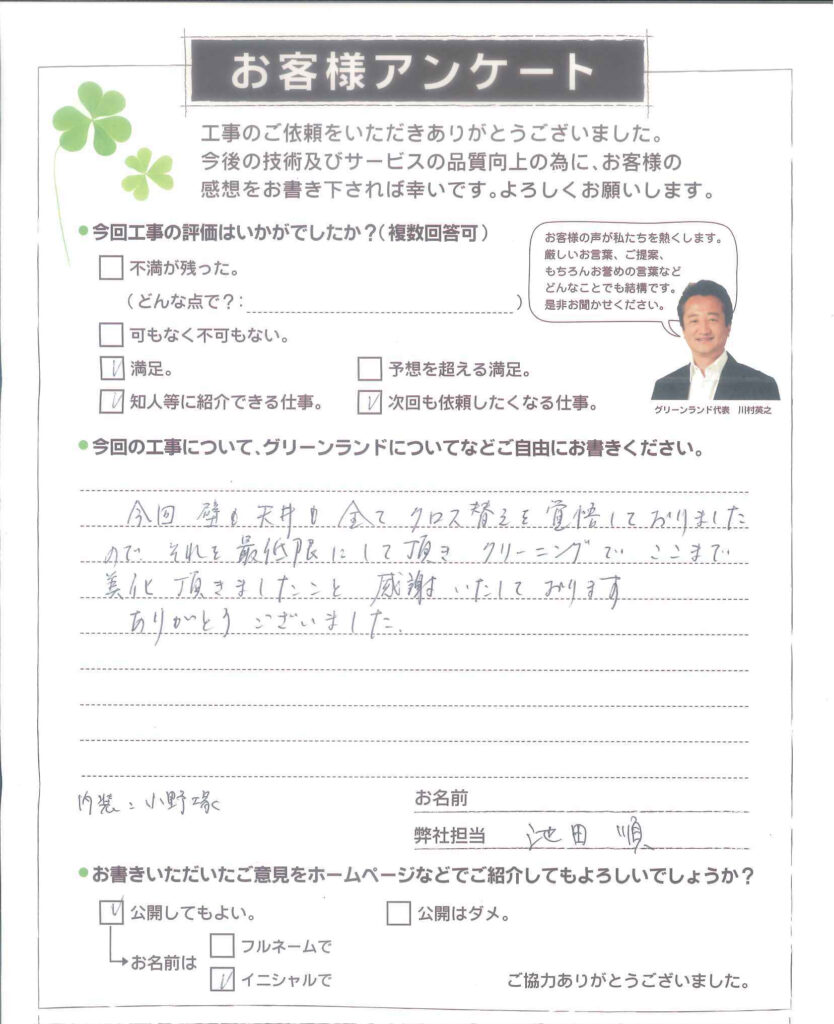 お客様アンケート
工事のご依頼をいただきありがとうございました。
今後の技術及びサービスの品質向上の為に、お客様の
感想をお書き下されば幸いです。よろしくお願いします。
今回工事の評価はいかがでしたか？（複数回答可）
不満が残った。
（どんな点で？：　）
可もなく不可もない。
満足。
予想を超える満足。
知人等に紹介できる仕事。
次回も依頼したくなる仕事。
お客様の声が私たちを熱くします。
厳しいお言葉、ご提案、
もちろんお誉めの言葉など
どんなことでも結構です。
是非お聞かせください。
グリーンランド代表　川村英之
今回の工事について、グリーンランドについてなどご自由にお書きください。
今回 壁も天井も 全て クロス替えを覚悟しておりました
ので それを最低限にして頂き クリーニングで ここまで
美化頂きましたこと 感謝いたしております
ありがとうございました。
内装：小野塚
お名前
弊社担当　池田　順
お書きいただいたご意見をホームページなどでご紹介してもよろしいでしょうか？
公開してもよい。
公開はダメ。
お名前は
フルネームで
イニシャルで
ご協力ありがとうございました。